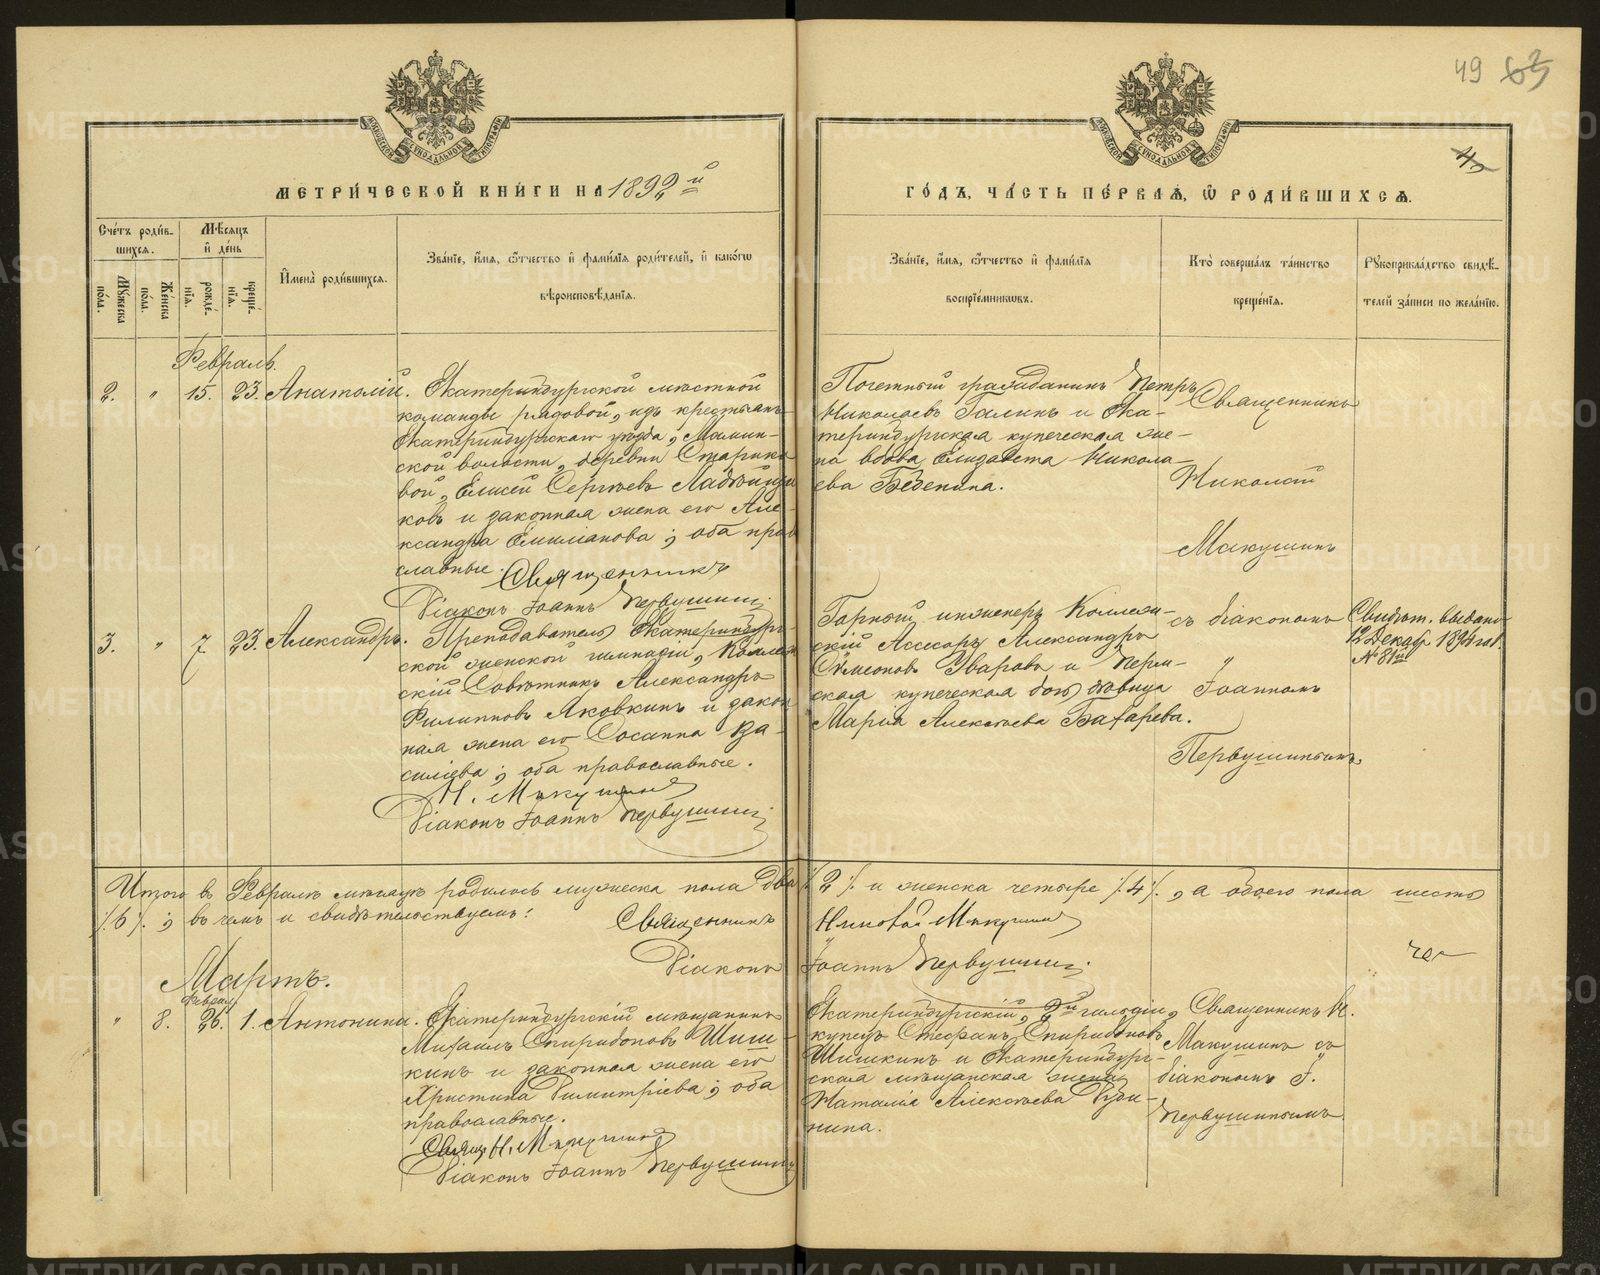 49
МЕТРИ́ЧЕСКОЙ КНИ́ГИ НА 1892й
ГО́ДЪ, ЧА́СТЬ ПЕ́РВАѦ, Ѡ РОДИ́ВШИХСѦ.
Сче́тъ роди́вшихся.
Му́жеска по́ла.
Же́нска по́ла.
Мѣ́сяцъ и де́нь
рожде́нія.
креще́нія.
Имена̀ роди́вшихся.
Зва́ніе, и́мя, ѻ҆́тчество и фами́лія роди́телей, и како́гѡ
вѣроисповѣ́данія.
Зва́ніе, и́мя, ѻ҆́тчество и фами́лія
воспріе́мниковъ.
Кто̀ соверша́лъ та́инство
креще́нія.
Рукоприкла́дство свидѣ́-
телей за́писи по жела́нію.
Февраль.
2. „ 15. 23. Анатолій.
Екатеринбургской мѣстной
команды рядовой, изъ крестьянъ
Екатеринбургскаго уѣзда, Мамин-
ской волости, деревни Старико
вой, Елисей Сергѣевъ
ковъ и законная жена его Але-
ксандра Емиліанова; оба право
славные. Священникъ
Діаконъ Іоаннъ Первушинъ
Почетный гражданинъ Петръ
Николаевъ Галинъ и Ека-
теринбургская купеческая же-
на вдова Елизавета Никола-
ева Беденина.
Священникъ
Николай
Макушинъ
съ діакономъ
„
Іоанномъ
Первушинымъ.
3. „ 7. 23. Александръ.
Преподаватель Екатеринбург-
ской женской гимназіи, Коллеж
скій Совѣтникъ Александръ
Филипповъ Яковкинъ и закон
ная жена его Сосанна Ва-
силіева; оба православные.
Н. Макушинъ
Діаконъ Іоаннъ Первушинъ
Горный инженеръ Коллеж-
скій Ассесоръ Александръ
Симеоновъ Уваровъ и Перм-
ская купеческая дочь дѣвица
Марія Алексѣева Бахарева.
Свидѣт. выдано
12 Декаб. 1894 год.
№ 81й
Итого въ Февралѣ мѣсяцѣ родилось мужеска пола два /2/. и женска четыре /4/., а обоего пола шесть
/6/.; въ чемъ и свидѣтельствуемъ: Священникъ Николай Макушинъ
Діаконъ Іоаннъ Первушинъ.
Мартъ.
Феврал.
„ 8. 26. 1. Антонина.
Екатеринбургскій мѣщанинъ
Михаилъ Спиридоновъ Шиш-
кинъ и законная жена его
Христина Димитріева; оба
православные.
Свящ. Н. Макушинъ
Діаконъ Іоаннъ Первушинъ
Екатеринбургскій, 2й гильдіи,
купецъ Стефанъ Спиридоновъ
Шишкинъ и Екатеринбург-
ская мѣщанская жена
Наталія Алексѣева
нина.
Священникъ Н.
Макушинъ съ
діакономъ І.
Первушинымъ